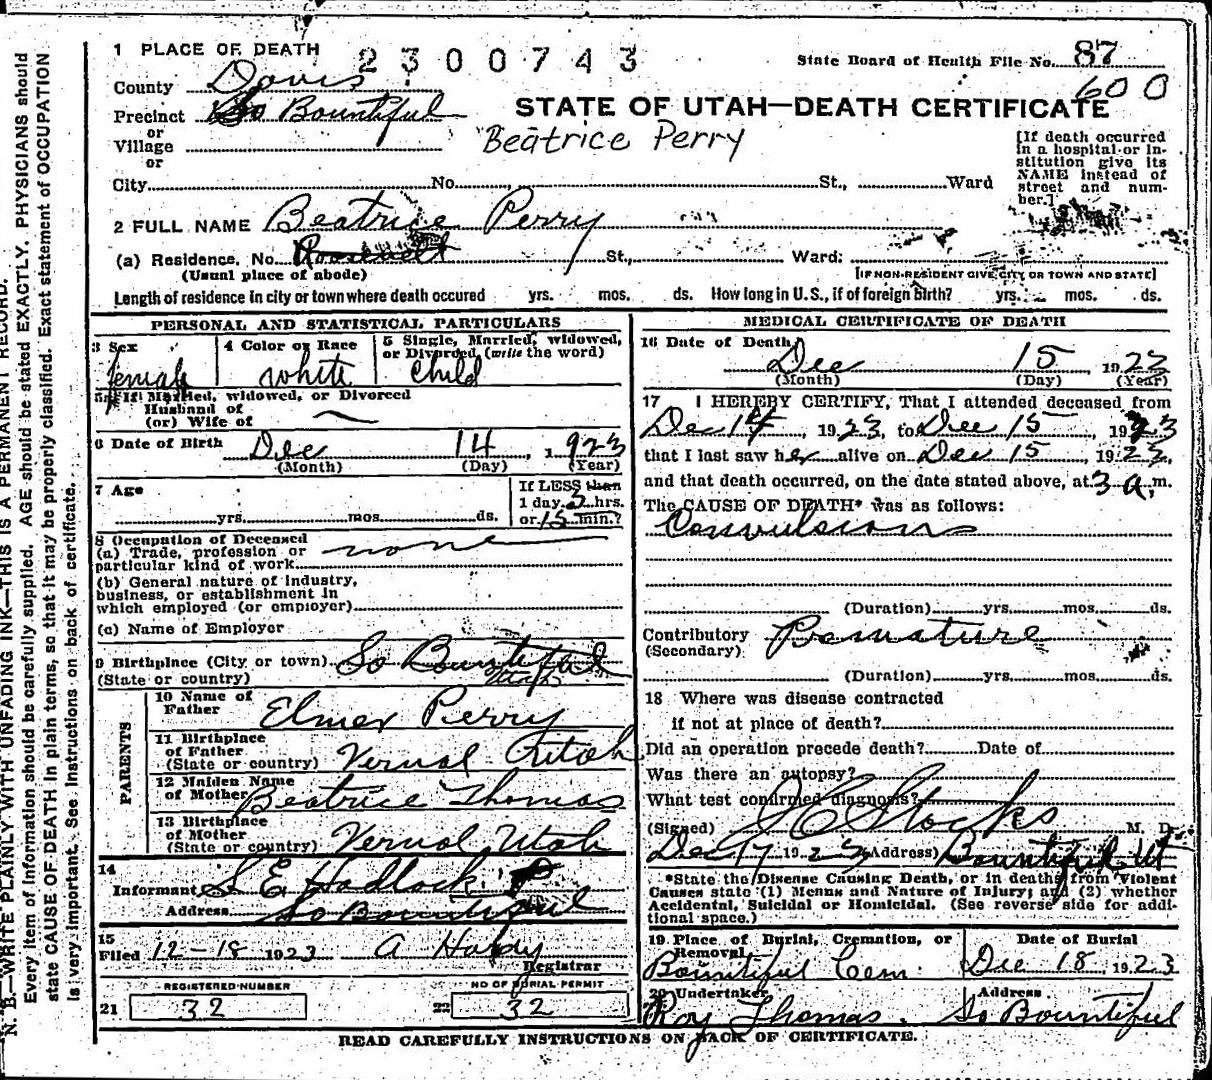 1 PLACE OF DEATH
2300743
State Board of Health File No. 87
600
County Davis
Precinct So Bountiful
or
Village
or
City No. St., Ward
STATE OF UTAH—DEATH CERTIFICATE
Beatrice Perry
[If death occurred
in a hospital or in-
stitution give its
NAME instead of
street and num-
ber.]
2 FULL NAME Beatrice Perry
(a) Residence. No. Roosevelt St., Ward:
(Usual place of abode)
[IF NON-RESIDENT GIVE CITY OR TOWN AND STATE]
Length of residence in city or town where death occured yrs. mos. ds. How long in U.S., if of foreign birth? yrs. mos. ds.
PERSONAL AND STATISTICAL PARTICULARS
3 Sex
female
4 Color or Race
white
5 Single, Married, widowed,
or Divorced (write the word)
child
5a If Married, widowed, or Divorced
Husband of
(or) Wife of
6 Date of Birth Dec 14, 1923
(Month) (Day) (Year)
7 Age
yrs. mos. ds.
If LESS than
1 day, 3 hrs.
or 15 min.?
8 Occupation of Deceased
(a) Trade, profession or
particular kind of work none
(b) General nature of industry,
business, or establishment in
which employed (or employer)
(c) Name of Employer
9 Birthplace (City or town) So Bountiful
(State or country) Utah
PARENTS
10 Name of
Father Elmer Perry
11 Birthplace
of Father
(State or country) Vernal Utah
12 Maiden Name
of Mother Beatrice Thomas
13 Birthplace
of Mother
(State or country) Vernal Utah
14
Informant S E Hadlock
Address So Bountiful
15
Filed 12-18 1923 A Hardy
Registrar
REGISTERED NUMBER
21 32
NO OF BURIAL PERMIT
22 32
MEDICAL CERTIFICATE OF DEATH
16 Date of Death
Dec 15 1923
(Month) (Day) (Year)
17 I HEREBY CERTIFY, That I attended deceased from
Dec 14, 1923, to Dec 15, 1923
that I last saw her alive on Dec 15, 1923,
and that death occurred, on the date stated above, at 3 a.m.
The CAUSE OF DEATH* was as follows:
Convulsions
(Duration) yrs. mos. ds.
Contributory Premature
(Secondary)
(Duration) yrs. mos. ds.
18 Where was disease contracted
if not at place of death?
Did an operation precede death? Date of
Was there an autopsy?
What test confirmed diagnosis?
(Signed) Stocks M. D.
Dec 17 1923 (Address) Bountiful Ut
*State the Disease Causing Death, or in deaths from Violent
Causes state (1) Menus and Nature of Injury; and (2) whether
Accidental, Suicidal or Homicidal. (See reverse side for addi-
tional space.)
19 Place of Burial, Cremation, or
Removal
Bountiful Cem.
Date of Burial
Dec 18, 1923
20 Undertaker
Roy Thomas.
Address
So Bountiful
READ CAREFULLY INSTRUCTIONS ON BACK OF CERTIFICATE.
N. B.—WRITE PLAINLY WITH UNFADING INK—THIS IS A PERMANENT RECORD.
Every item of information should be carefully supplied. AGE should be stated EXACTLY. PHYSICIANS should
state CAUSE OF DEATH in plain terms, so that it may be properly classified. Exact statement of OCCUPATION
is very important. See instructions on back of certificate.